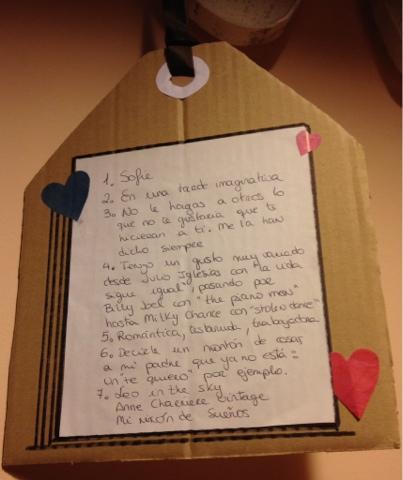 1. Sofie
2. En una tarde imaginativa
3. No le hagas a otros lo
que no te gustaria que te
hicieran a ti. Me la han
dicho siempre
4. Tengo un gusto muy variado
desde Julio Iglesias con "la vida
sigue igual", pasando por
Billy Joel con "the piano man"
hasta Milky Chance con "stolen dance"
5. Romántica, testaruda, trabajadora
6. Decirle un montón de cosas
a mi padre que ya no está:
un "te quiero" por ejemplo.
7. Leo in the sky
Anne Vintage
Mi rincón de sueños